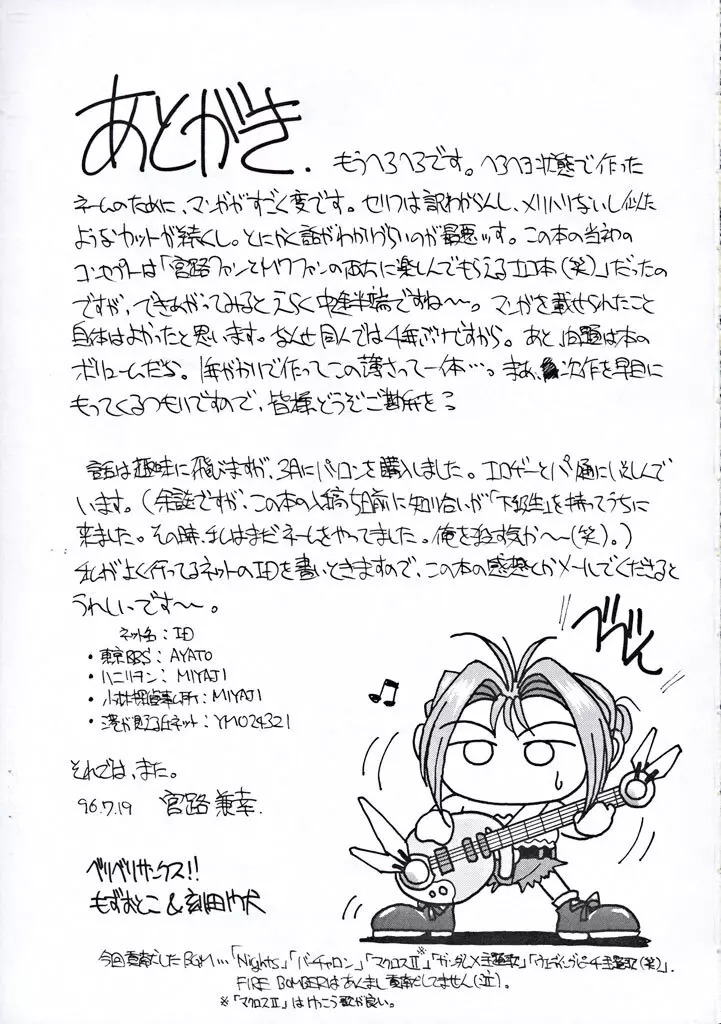 あとがき. もうヘろヘろです。ヘろヘろ状態で作った
ネームのために、マンガがすごく変です。セリフは訳わからんし、メリハリないし似た
ようなカットが続くし。とにかく話がわかりづらいのが最悪ッす。この本の当初の
コンセプトは「宮路ファンと　ファンの両方に楽しんでもらえるエロ本(笑)」だったの
ですが、できあがってみるとえらく中途半端ですね〜〜。マンガを載せられたこと
自体はよかったと思います。なんせ同人では4年ぶりですから。あと、問題は本の
ボリュームだな。1年がかりで作ってこの薄さって一体…。まあ、次作を早目に
もってくるつもりですので、皆様どうぞご勘弁を
話は趣味に飛びますが、3月にパソコンを購入しました。エロゲーとパソ通にいそしんで
います。(余談ですが、この本の入稿5日前に知り合いが「下級生」を持ってうちに
来ました。その時、私はまだネームをやってました。俺を殺す気か〜〜(笑)。)
私がよく行ってるネットのIDを書いときますので、この本の感想とかメールでくださると
うれしいです〜〜。
ネット名：ID
・東京BBS：AYATO
・ハニリオン：MIYAJI
・小林探偵事ム所：MIYAJI
・港が見える丘ネット：YMO24321
べべん
それでは、また。
96.7.19 宮路兼幸.
ベリベリサンクス!!
もずおとこ&刻田
今回貢献したBGM…「Nights」「バーチャロン」「マクロスⅡ※」「ガンダムX主題歌」「ウェディングピーチ主題歌(笑)」.
FIRE BOMBERはあんまし貢献してません(泣).
※「マクロスⅡ」はけっこう歌が良い。